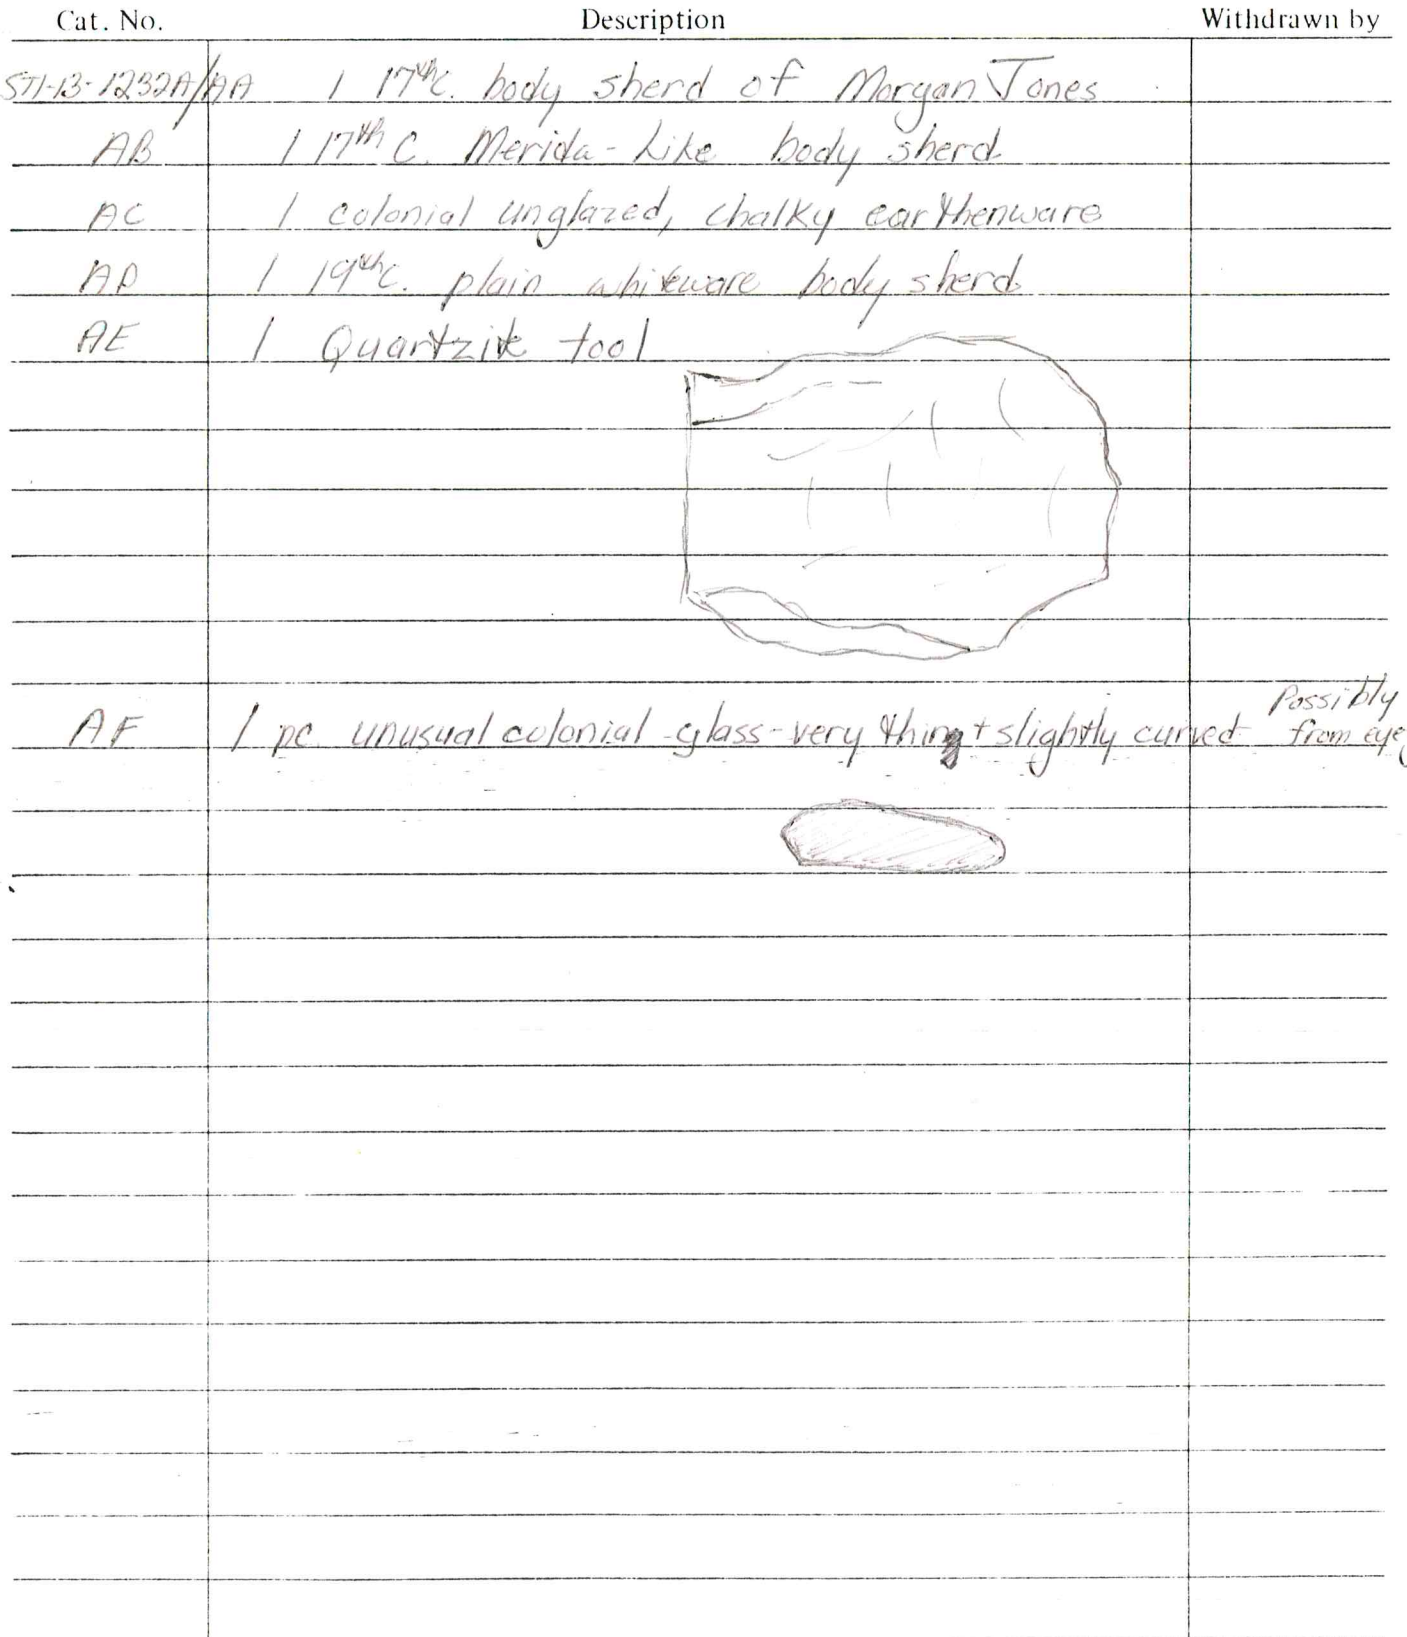 Cat. No. Description Withdrawn by
ST1-13-1232A/AA 1 17th C. body sherd of Morgan Jones
AB 1 17th C. Merida-Like body sherd
AC 1 colonial unglazed, chalky earthenware
AD 1 19th C. plain whiteware body sherd
AE 1 Quartzite tool
AF 1 pc. unusual colonial glass - very thin + slightly curved Possibly
from eye